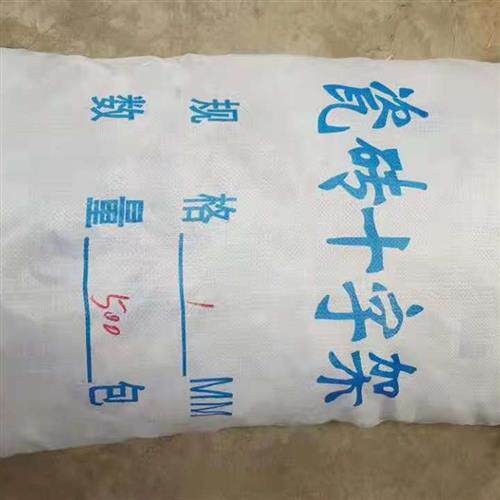 瓷砖十字架
规格 1 MM
数量 500 包